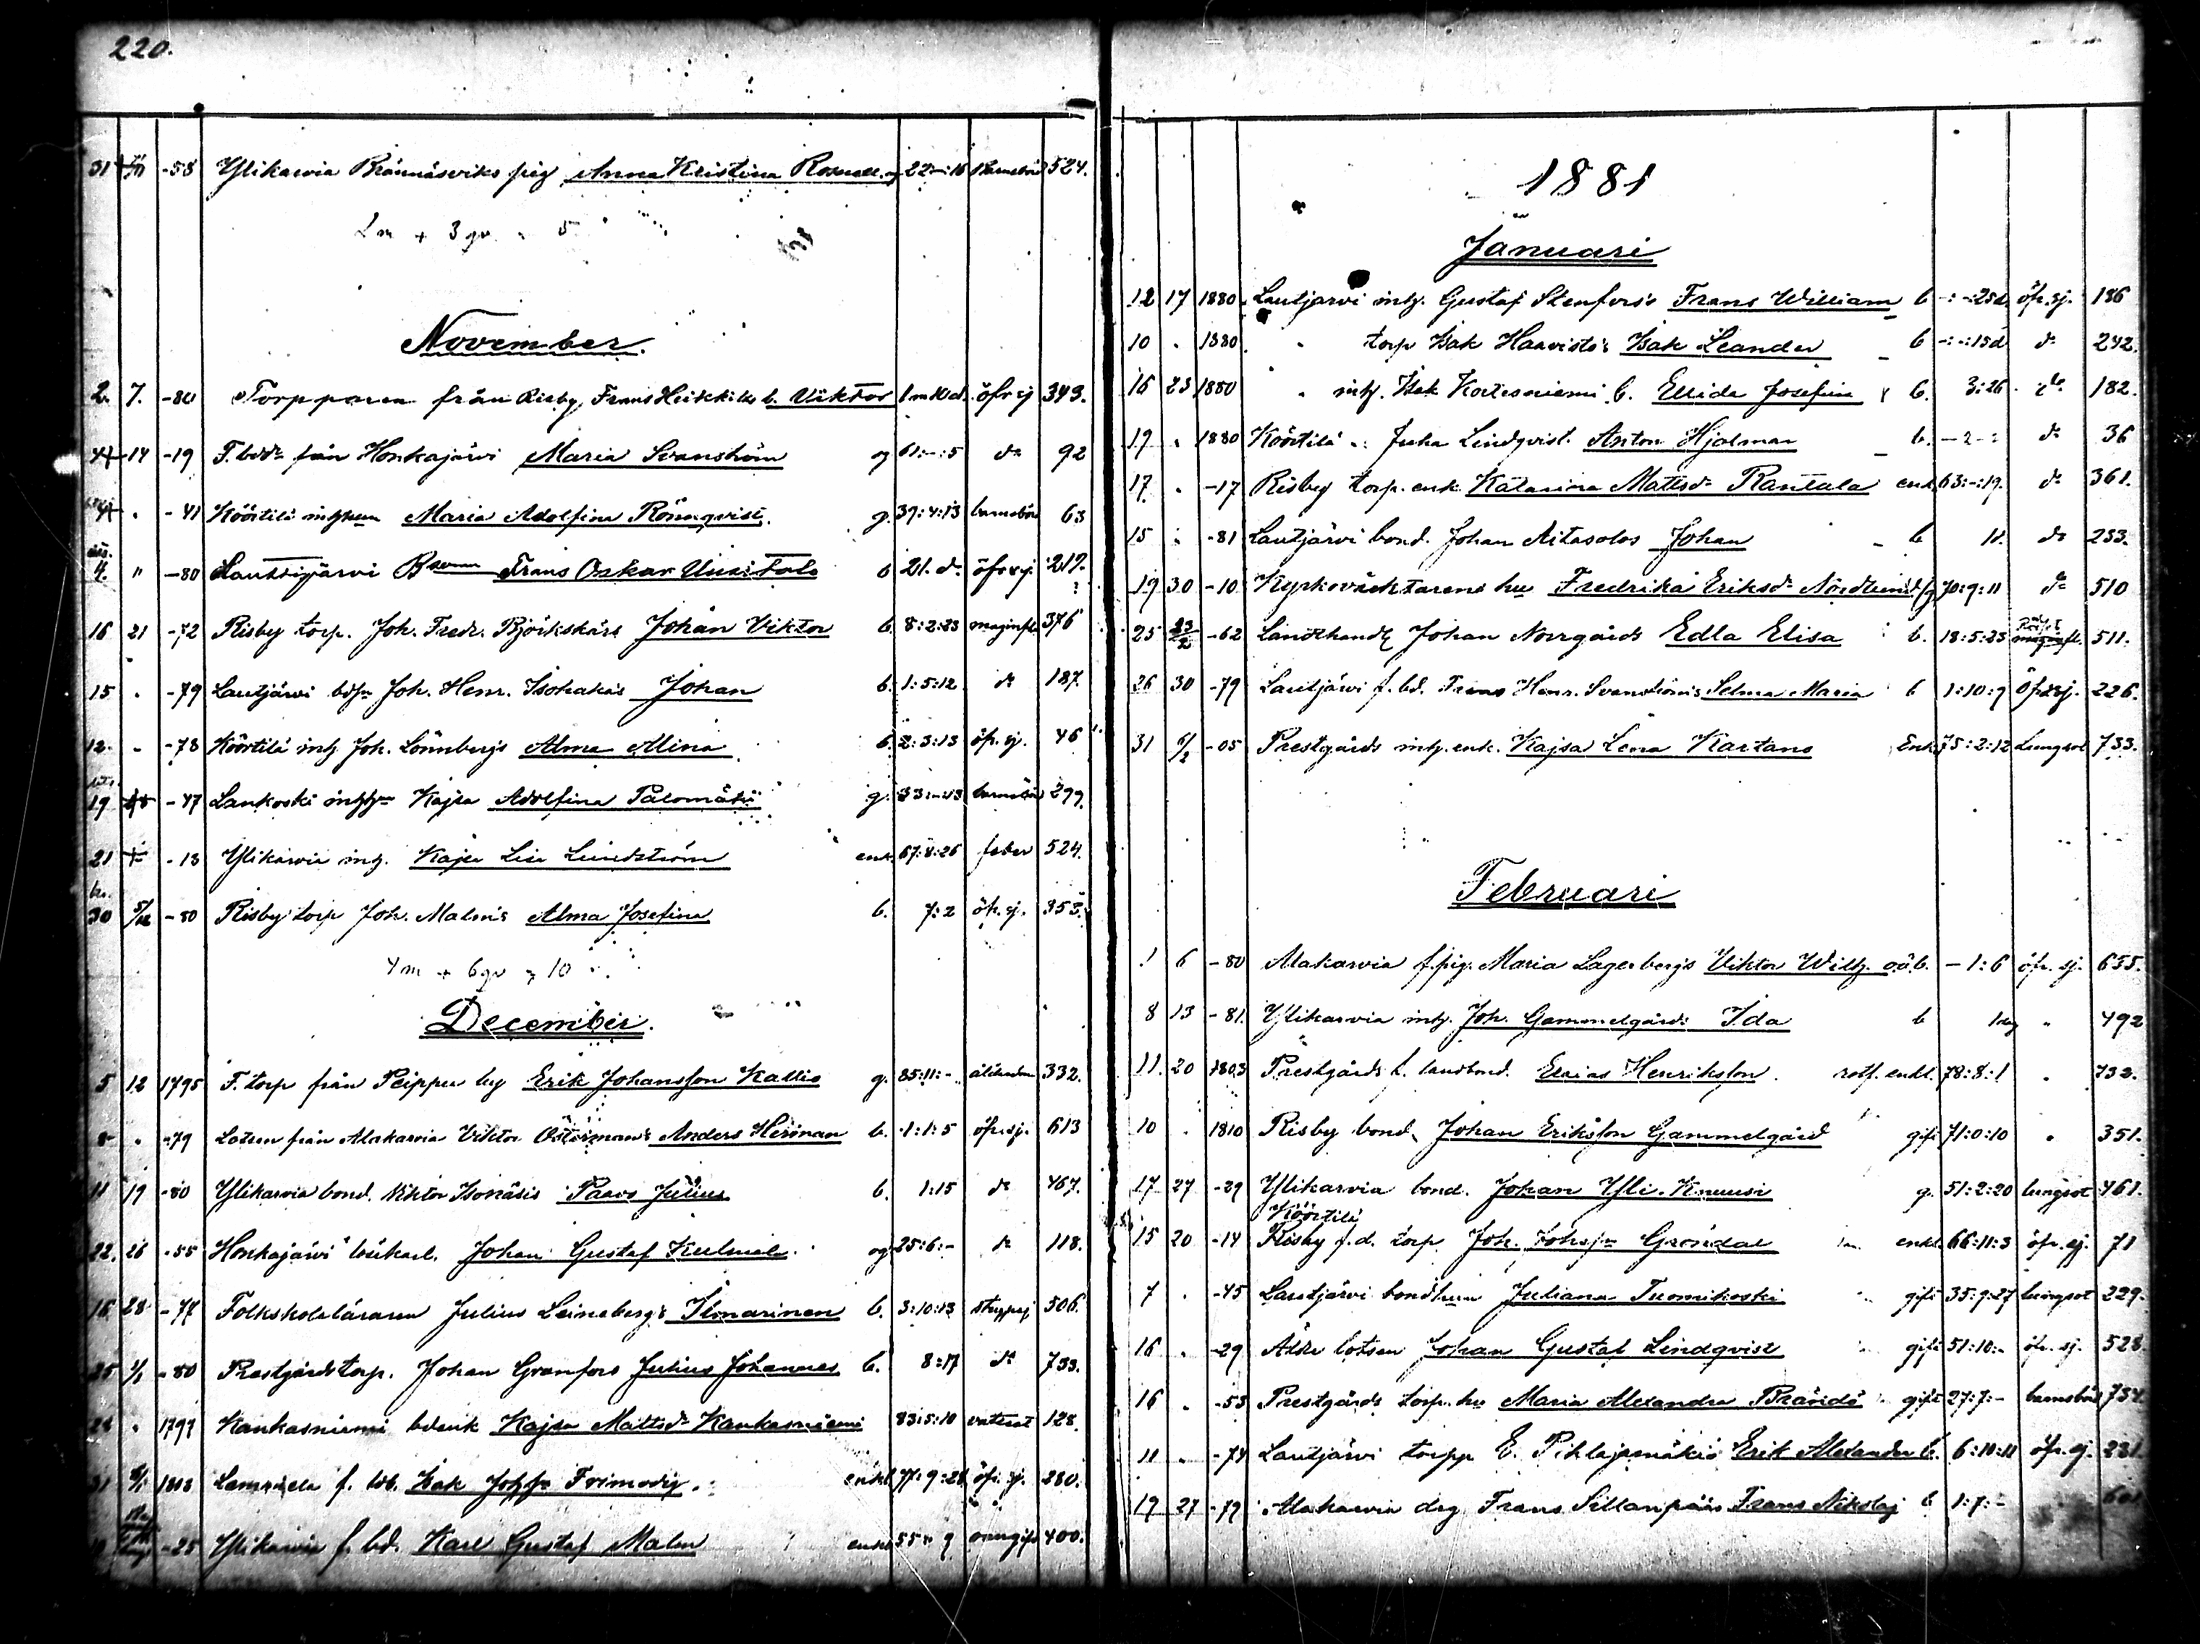 220.
31 -58 Ylikarvia Brännäsviks pig Anna Kristina og 22:-:16 barnsbörd 524.
2 m + 3 qv. = 5
November.
2. 7. -80 Torpparen från Risby Frans Heikkiläs b. Viktor 1 m 10 d. öfr sj 349.
14 -19 F. bdd:r från Honkajärvi Maria Svanström og 61:-:5 d:o 92
" -41 Köörtilä Maria Adolfina Rönnqvist. g. 39:4:13 barnsbörd 63
4. " -80 Lauttijärvi Frans Oskar Uusitalo b 21. d. öfr sj. 217.
16 21 -72 Risby torp. Joh. Fredr. Björkskärs Johan Viktor b. 8:2:23 maginfl. 376
15 . -79 Lautjärvi Joh. Henr. Isohaka's Johan b. 1:5:12 d:o 187.
12. . -78 Köörtilä inh. Joh. Lönnbergs Alma Alina b. 2:3:13 öfr. sj. 46
19 -47 Lankoski Kajsa Adolfina Palomäki g. 33:-:23 barnsbörd 299.
21 -13 Ylikarvia inh. Kajsa Lisa Lundström enk. 67:8:26 feber 524.
30 5/12 -80 Risby torp Joh. Malm's Alma Josefina b. 7:2 öfr. sj. 353.
4 m + 6 qv = 10
December.
5 12 1795 F. torp från Peippu by Erik Johansson Kallio g. 85:11:- ålderdom 332.
8 . -79 Lotsen från Alakarvia Viktor Österman's Anders Herman b. 1:1:5 öfr. sj. 613
11 19 -80 Ylikarvia bond. Viktor Isokäsis Paavo Julius b. 1:15 d:o 467.
22. 26 -55 Honkajärvi Johan Gustaf og 25:6:- d:o 118.
16 28 -77 Folkskoleläraren Julius Leinebergs Ilmarinen b. 3:10:13 strypsj 506.
25 1/1 -80 Prestgårds torp. Johan Granfors Julius Johannes b. 8:17 d:o 733.
24 . 1797 Kankasniemi bdenk Kajsa Mattsd:r Kankasniemi 83:5:10 vattsot 128.
31 1803 Lamppela f. bd. Isak Johss:n Frimodig. enkl. 77:9:28 öfr. sj. 280.
-25 Ylikarvia f. bd. Karl Gustaf Malm enkl 55 " 9 400.
1881
Januari
12 17 1880 Lautjärvi inh. Gustaf Stenfors's Frans William b -:-:25 d. öfr. sj. 186
10 . 1880 " torp Isak Haavisto's Isak Leander b -:-:15 d d:o 242.
16 23 1880 " inh. Isak Kortesniemi b. Ellida Josefina b. 3:26 d:o 182.
19 . 1880 Köörtilä Juha Lindqvist. Anton Hjalmar b. -2-: d:o 36
17 . -17 Risby torp. enk. Katarina Mattsd:r Rantala enk 63:-:19. d:o 361.
15 . -81 Lautjärvi bond. Johan Aitasalos Johan b 1 t. d:o 233.
19 30 -10 Kyrkoväktarens hu Fredrika Eriksd:r Nordlund g 70:9:11 d:o 510
25 23/2 -62 Landthandl Johan Norrgårds Edla Elisa b. 18:5:23 511.
26 30 -79 Lautjärvi f. bd. Frans Henr. Svanströms Selma Maria b 1:10:9 Öfr sj. 226.
31 6/2 -05 Prestgårds inh. enk. Kajsa Lena Kartano Enk 75:2:12 Lungsot 733.
Februari
1 6 -80 Alakarvia f. pig. Maria Lagerbergs Viktor Wilh. o.ä.b. -1:6 öfr. sj. 655.
8 13 -81. Ylikarvia inh. Joh. Gammelgårds Ida b 1 dag " 492
11. 20 1803 Prestgårds f. landbond. Esaias Henriksson. rotf. enkl. 78:8:1 " 732.
10 . 1810 Risby bond. Johan Eriksson Gammelgård gift 71:0:10 " 351.
17 27 -29 Ylikarvia bond. Johan Yli-Knuusi g. 51:2:20 lungsot 461.
Köörtilä
15 20 -14 Risby f.d. torp. Joh. Johss:n Gröndal enkl. 66:11:3 öfr. sj. 71
7 . -45 Lautjärvi bondhu Juliana Tuomikoski gift 35:9:27 lungsot 229.
16 . -29 Ålder lotsen Johan Gustaf Lindqvist gift 51:10:- öfr. sj. 528.
16 . -53 Prestgårds torp. hu Maria Alexandra Brändö gift 27:7:- barnsbörd 734
11 . -74 Lautjärvi torpp E. Pihlajamäkis Erik Alexander b. 6:10:11 öfr. sj. 231.
19 27 -79 Alakarvia drg Frans Sillanpääs Frans Nikolaj b 1:7:-